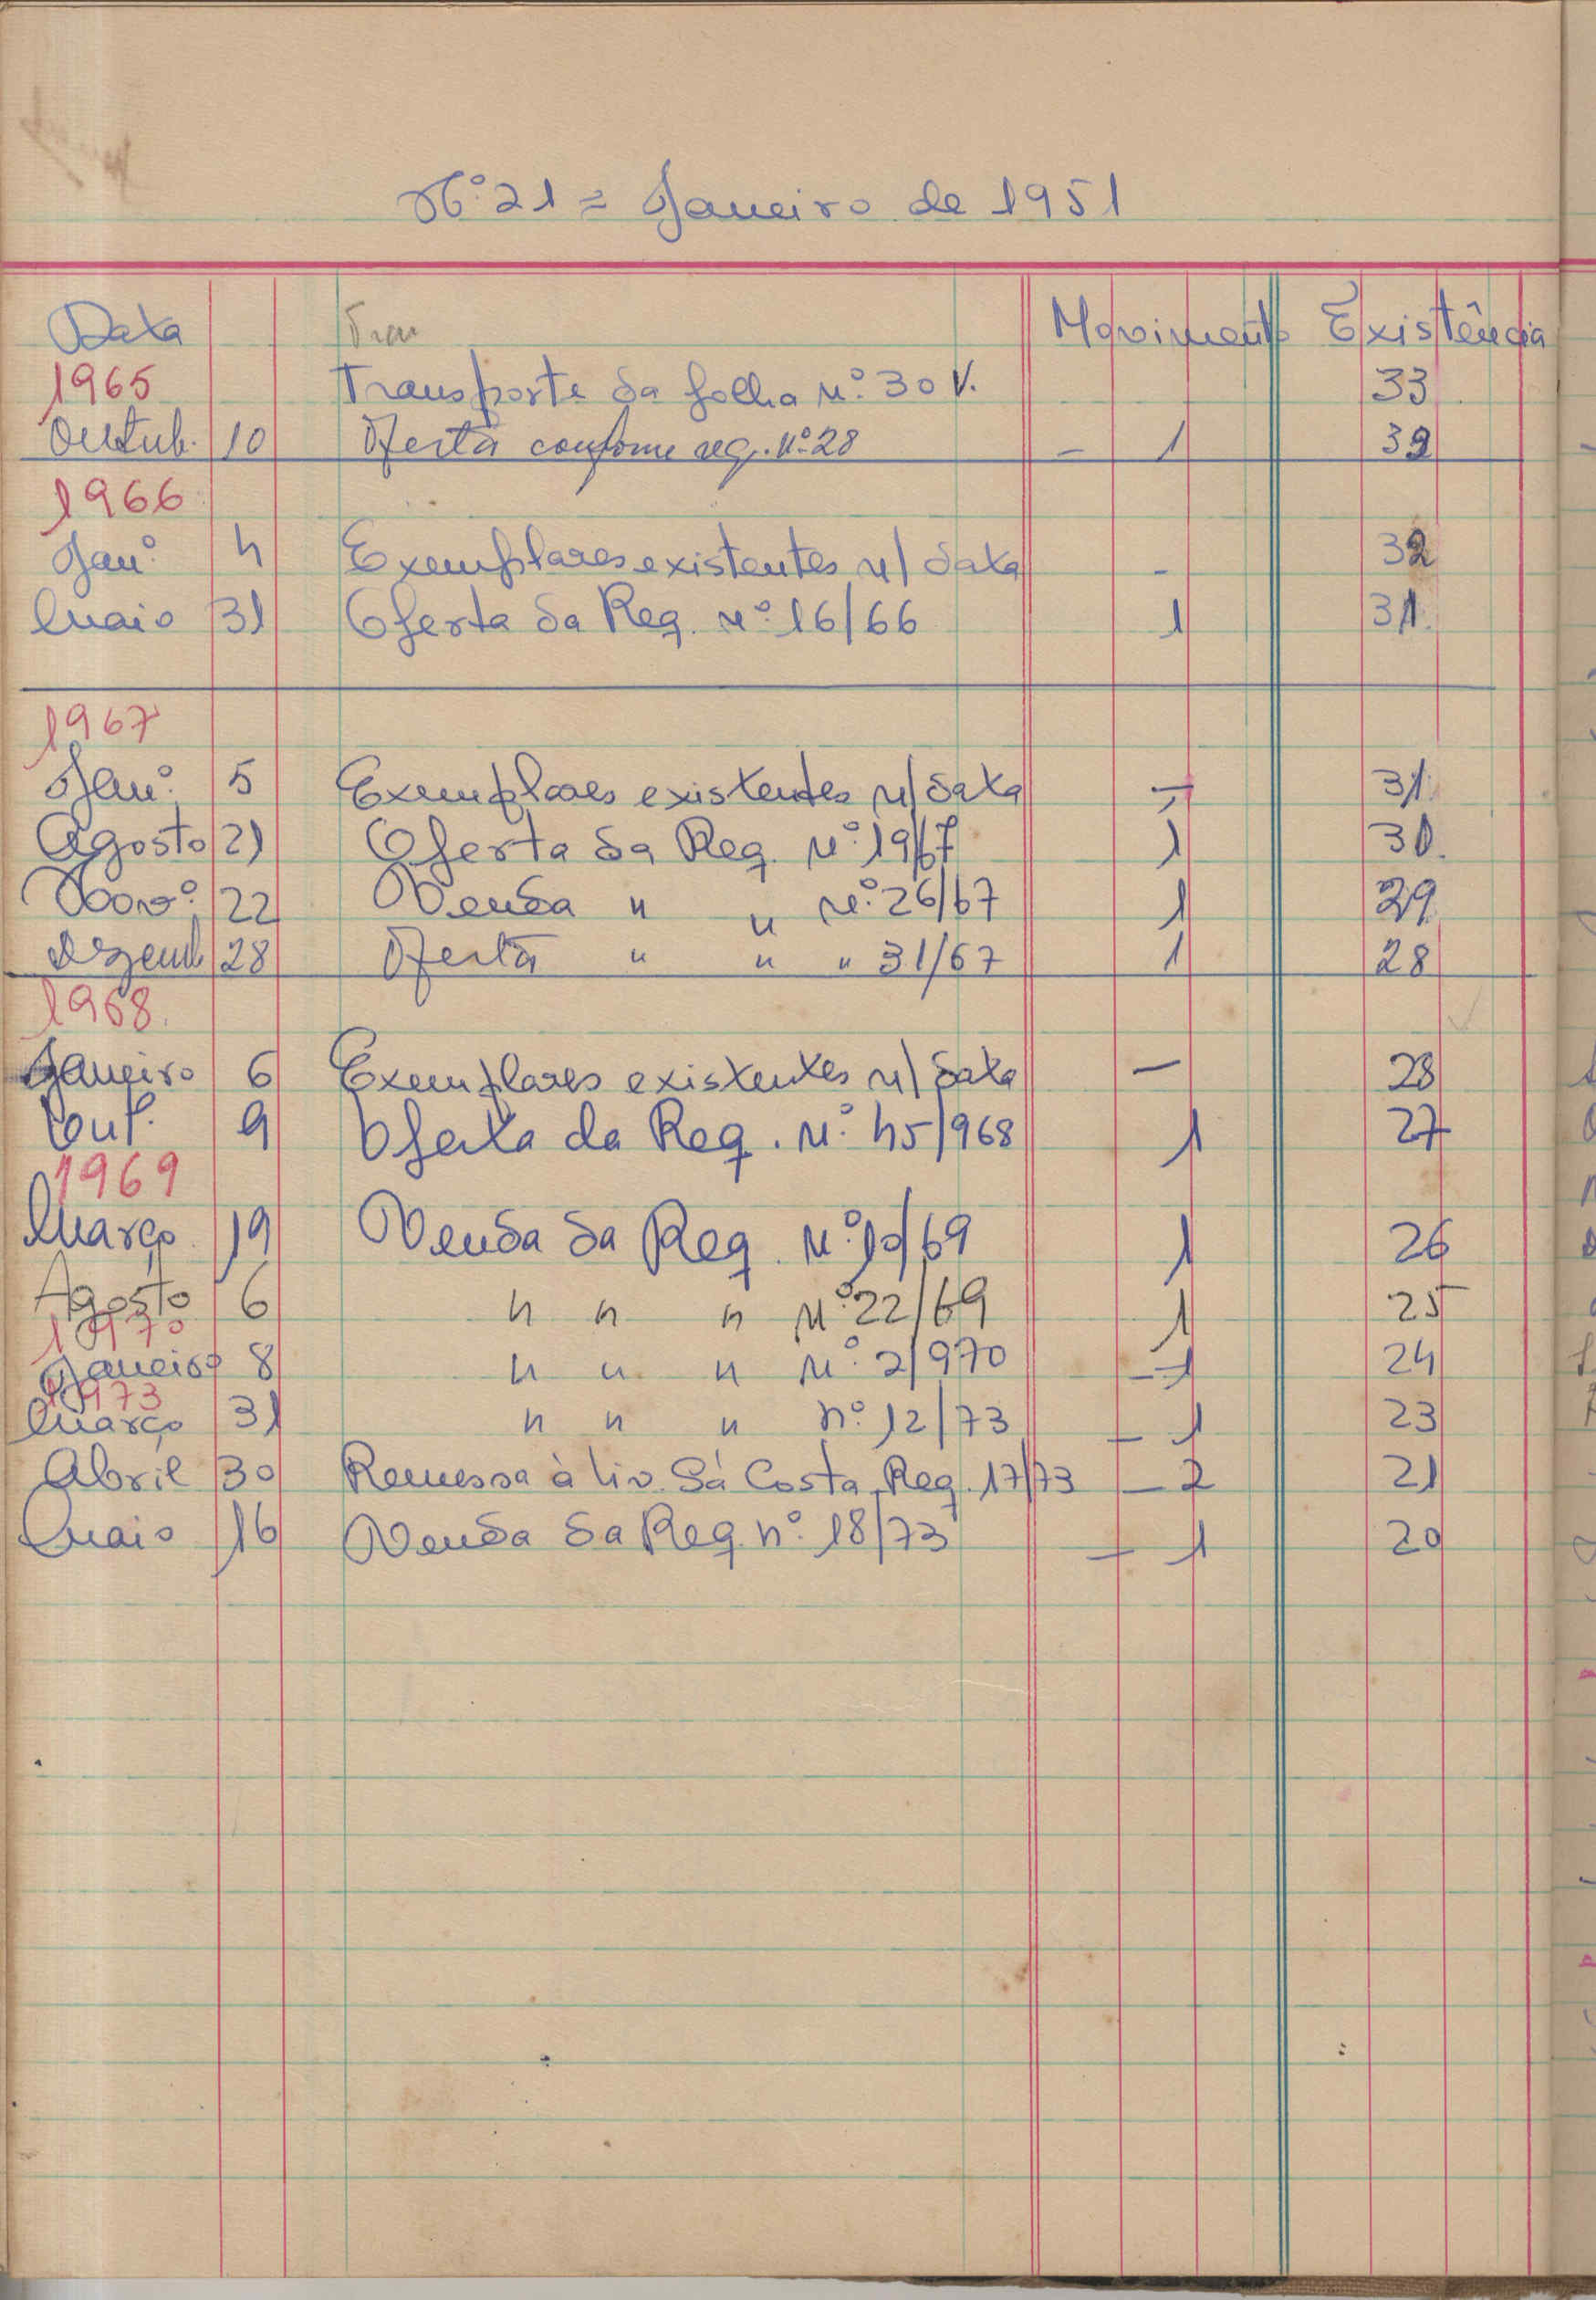 Nº 21 = Janeiro de 1951
Data Tran Movimento Existência
1965 Transporte da folha nº 30 V. 33
Outub. 10 Oferta conforme req. nº 28 - 1 32
1966
Janº 4 Exemplares existentes n/ data - 32
Maio 31 Oferta da Req. nº 16/66 1 31.
1967
Janº 5 Exemplares existentes n/ data - 31.
Agosto 21 Oferta da Req. nº 19/67 1 30.
Novº 22 Venda " " nº 26/67 1 29
Dezemb 28 Oferta " " " 31/67 1 28
1968.
Janeiro 6 Exemplares existentes n/ data - 28
Out. 9 Oferta da Req. nº 45/968 1 27
1969
Março 19 Venda da Req. nº 10/69 1 26
Agosto 6 " " " nº 22/69 1 25
1970
Janeiro 8 " " " nº 2/970 - 1 24
1973
Março 31 " " " nº 12/73 - 1 23
Abril 30 Remessa à Liv. Sá Costa, Req. 17/73 - 2 21
Maio 16 Venda da Req. nº 18/73 - 1 20